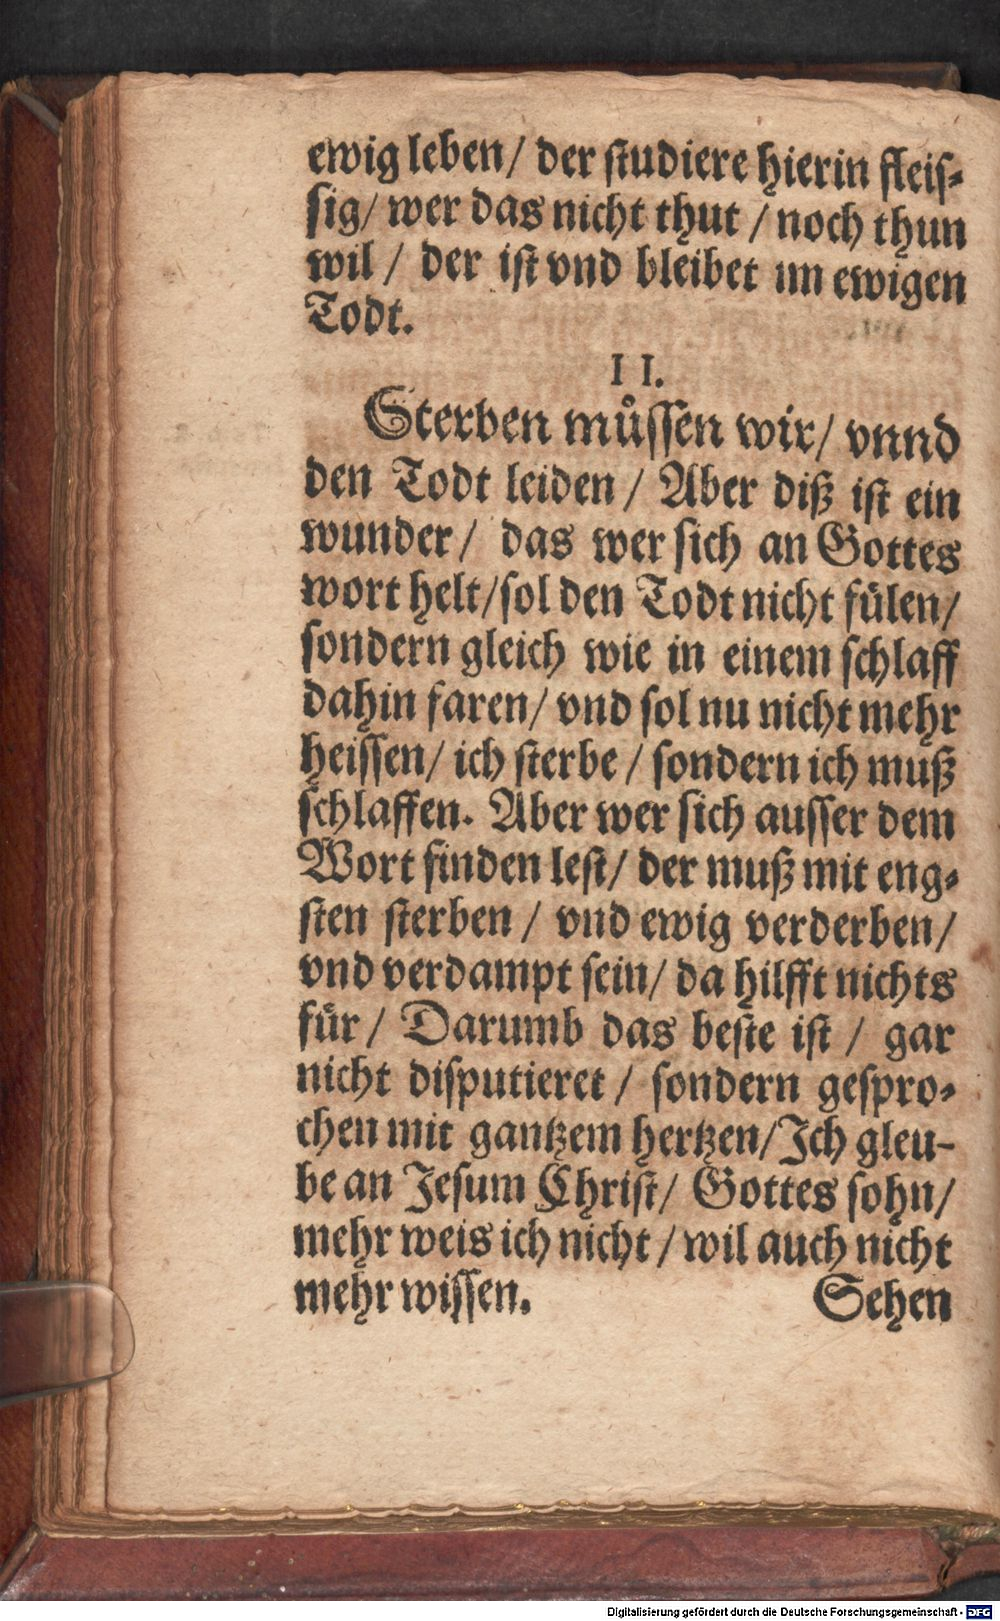 ewig leben/ der studiere hierin fleis⸗
sig/ wer das nicht thut / noch thun
wil / der ist vnd bleibet im ewigen
Todt.
II.
Sterben muͤssen wir/ vnnd
den Todt leiden / Aber diß ist ein
wunder / das wer sich an Gottes
wort helt/ sol den Todt nicht fülen/
sondern gleich wie in einem schlaff
dahin faren/ vnd sol nu nicht mehr
heissen/ ich sterbe / sondern ich muß
schlaffen. Aber wer sich ausser dem
Wort finden lest/ der muß mit eng⸗
sten sterben / vnd ewig verderben/
vnd verdampt sein/ da hilfft nichts
für / Darumb das beste ist / gar
nicht disputieret / sondern gespro⸗
chen mit gantzem hertzen/ Ich gleu-
be an Jesum Christ/ Gottes sohn/
mehr weis ich nicht / wil auch nicht
mehr wissen. Sehen
Digitalisierung gefördert durch die Deutsche Forschungsgemeinschaft - DFG